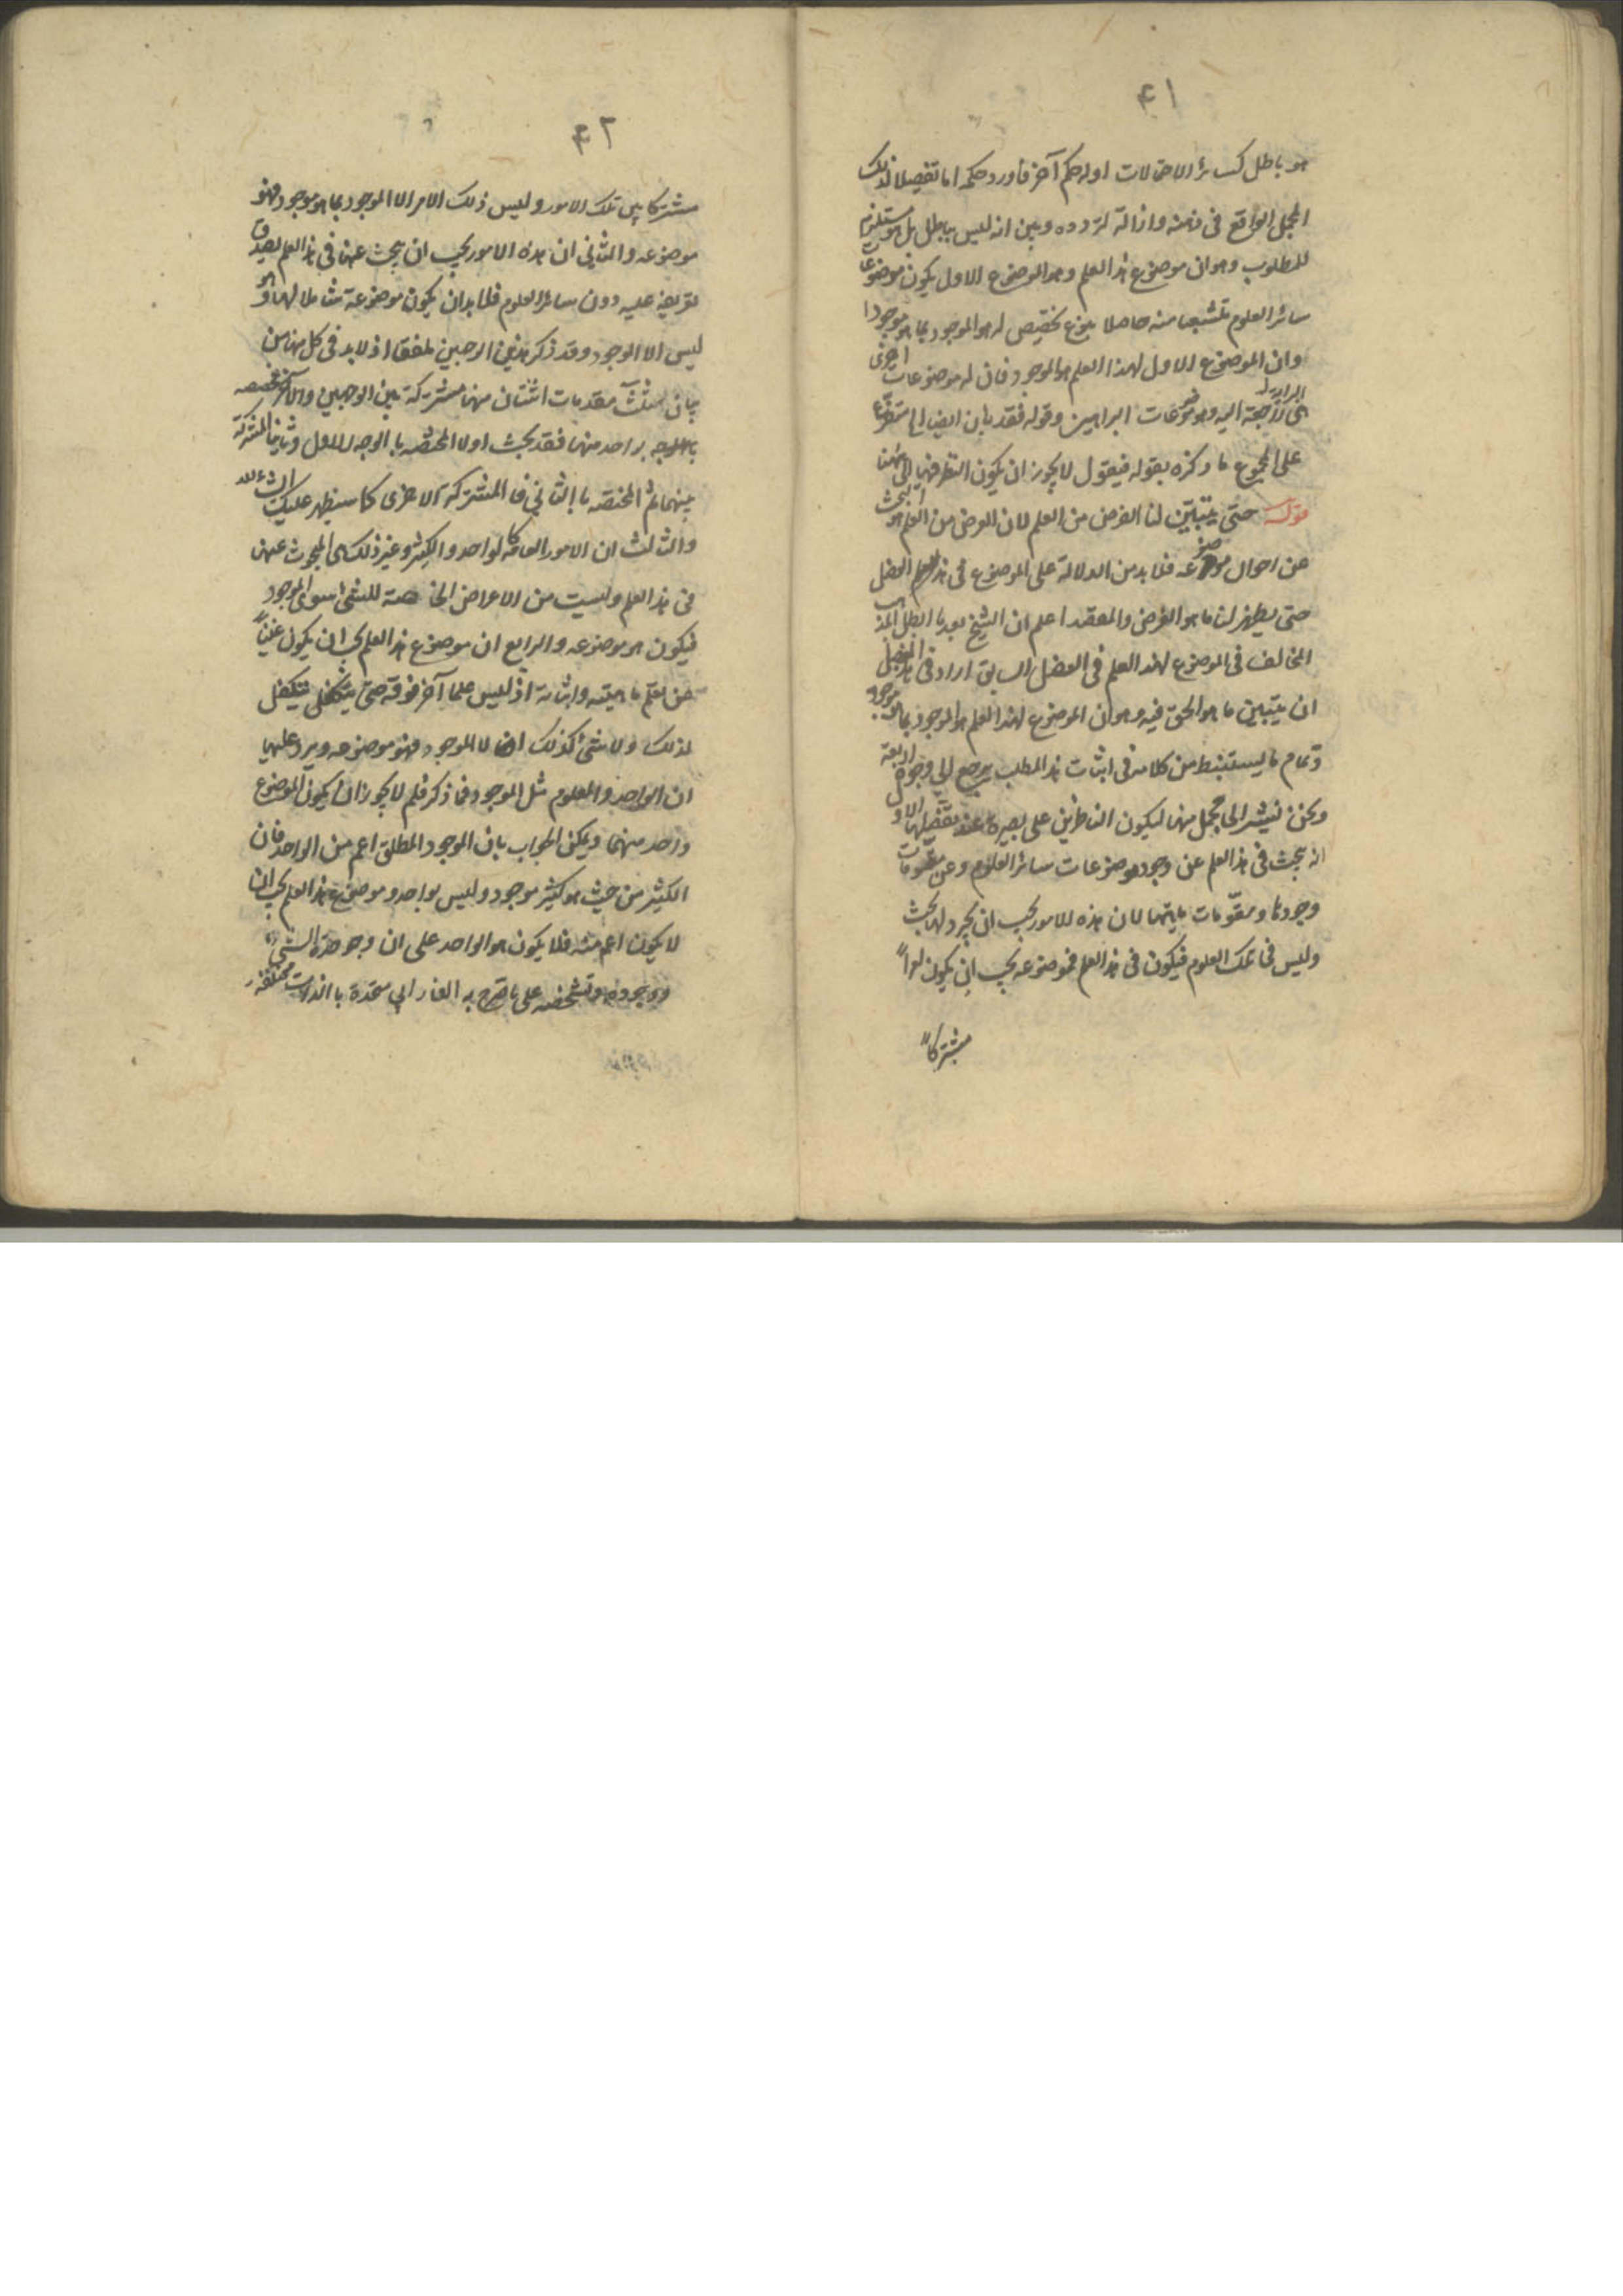 ۴۱
هو باطل كسائر الاحتمالات او له حكم آخر فاورد حكمه اما تفصيلا لذلك
المجمل الواقع فى ذهنه وازالة لتردده وبين انه ليس بباطل بل هو مستلزم
للمطلوب وهو ان موضوع هذا العلم وهو الموضوع الاول يكون موضوعات
سائر العلوم تشعبا منه حاصلا بنوع تخصيص له هو الموجود بما هو موجود
وان الموضوع الاول لهذا العلم هو الموجود فان له موضوعات اخرى
هى راجعة اليه وهو موضوعات البراهين وقوله فقد بان ايضا الى متفرعا
على المجموع ما ذكره بقوله فيقول لا يجوز ان يكون النظر فيها الى ههنا
قوله حتى يتبين لنا الغرض من العلم لان الغرض من العلم هو البحث
عن احوال موضوعه فلا بد من الدلالة على الموضوع فى هذا الفصل
حتى يظهر لنا ما هو الغرض والمقصد اعلم ان الشيخ بعد ما ابطل المذهب
المخالف فى الموضوع لهذا العلم فى الفصل السابق اراد فى هذا الفصل
ان يتبين ما هو الحق فيه وهو ان الموضوع لهذا العلم هو الموجود بما هو موجود
وتمام ما يستنبط من كلامه فى اثبات هذا المطلب يرجع الى وجوه اربعة
ونحن نشير الى مجمل منها ليكون الناظرين على بصيرة عند تفصيلها الاول
انه يبحث فى هذا العلم عن وجود موضوعات سائر العلوم وعن مقومات
وجودها ومقومات ماهيتها لان هذه الامور يجب ان يجرد لها بحث
وليس فى تلك العلوم فيكون فى هذا العلم فموضوعه يجب ان يكون امرا
مشتركا
۴۲
مشتركا بين تلك الامور وليس ذلك الامر الا الموجود بما هو موجود فهو
موضوعه والثانى ان هذه الامور يجب ان يبحث عنها فى هذا العلم لصدق
تعريفه عليه دون سائر العلوم فلا بد ان يكون موضوعه شاملا لها وهو
ليس الا الموجود وقد ذكر هذين الوجهين ملفقا اذ لا بد فى كل منهما من
بيان ثلث مقدمات اثنتان منها مشتركة بين الوجهين والاخرى مختصه
بالوجه بواحد منهما فقد بحث اولا المختصه بالوجه الاول وثانيا المشتركة
بينهما ثم المختصه بالثانى فالمشتركة الاخرى كما سيظهر عليك انشاء الله
والثالث ان الامور العامة كالواحد والكثير وغير ذلك هى المبحوث عنها
فى هذا العلم وليست من الاعراض الخاصة للشئ سوى الموجود
فيكون هو موضوعه والرابع ان موضوع هذا العلم يجب ان يكون غنيا
عن تعلم ماهيته واثباته اذ ليس علما آخر فوقه حتى يتكفل
لذلك ولا شئ كذلك الا الموجود فهو موضوعه ويرد عليها
ان الواحد والمعلوم مثل الموجود فما ذكر فلم لا يجوز ان يكون الموضوع
واحد منهما ويمكن الجواب بان الموجود المطلق اعم من الواحد فان
الكثير من حيث هو كثير موجود وليس بواحد وموضوع هذا العلم يجب ان
لا يكون اعم منه فلا يكون هو الواحد على ان وحدة الشئ
ووجوده وتشخصه على ما صرح به الفارابى متحدة بالذات مختلفة